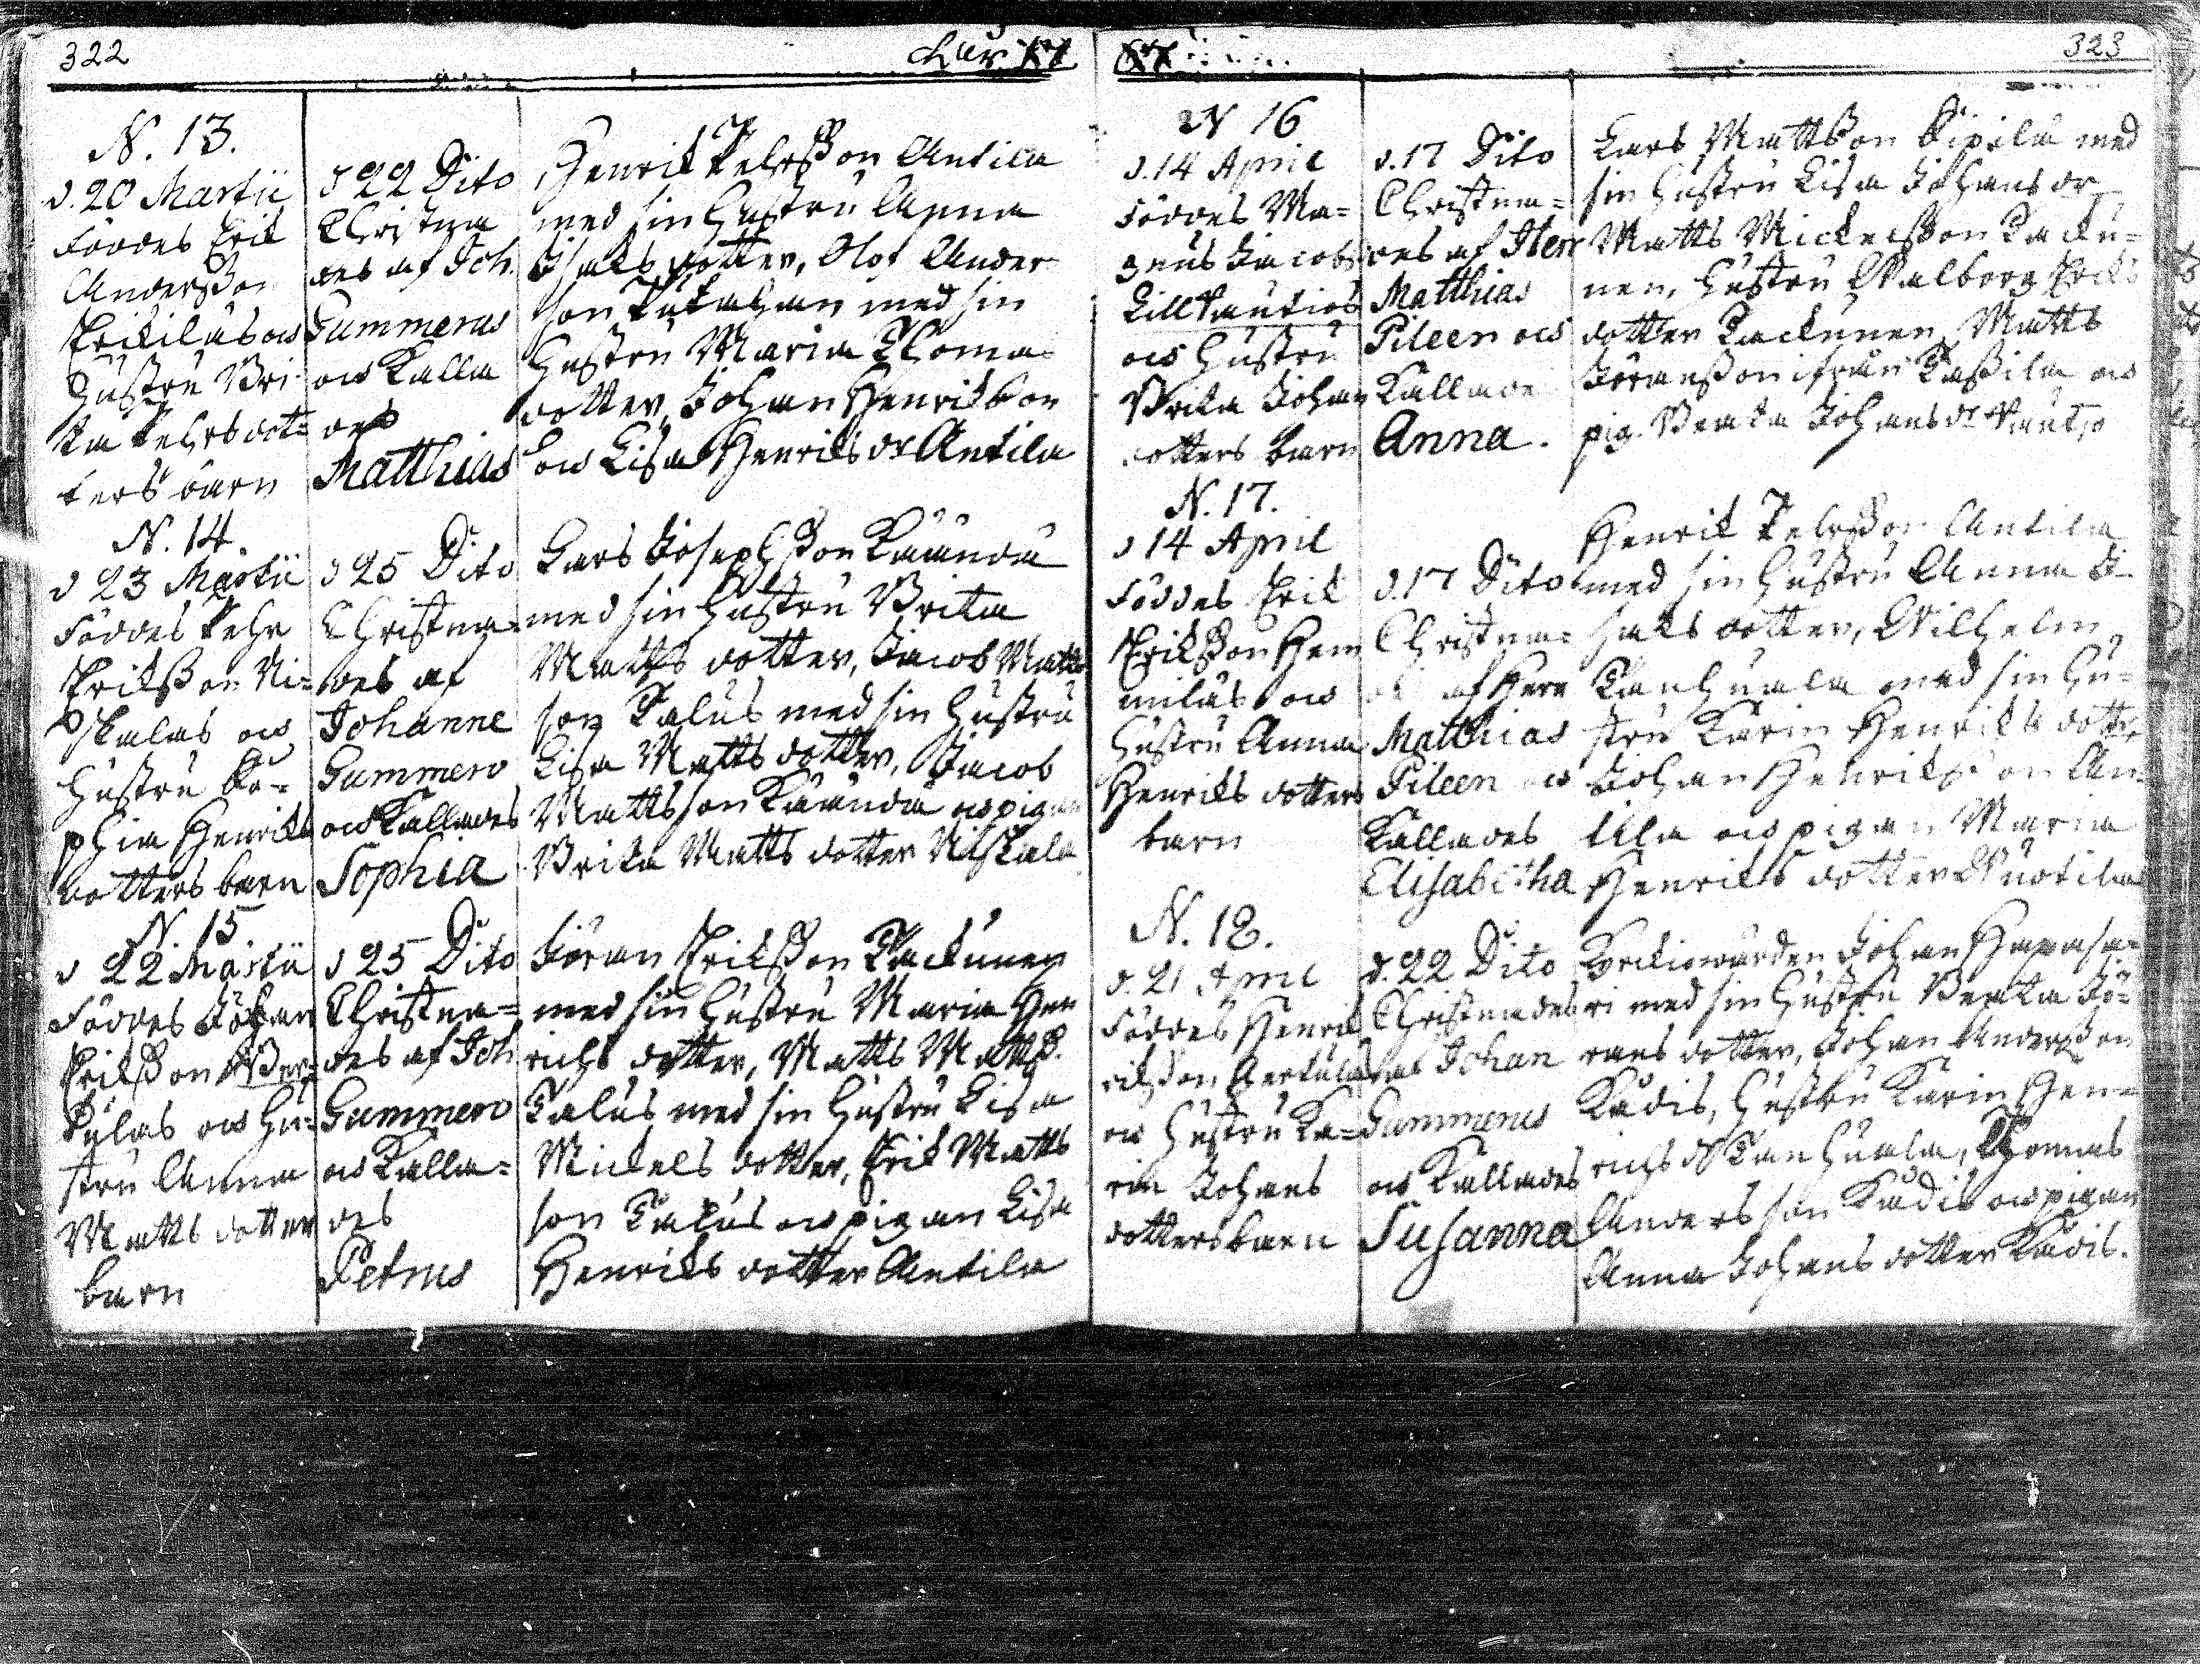 322
N. 13.
d. 20 Martii
Föddes Erik
Anderßon
Erkilas ow
Hustru Bri-
ta Pehrs dot=
ters barn
d 22 Dito
Christna
des af Joh.
Gummerus
ow Kalla
des
Matthias
Henrik Pehrßon Antila
med sin Hustru Anna
Isaks dotter, Olof Anders
son med sin
Hustru Maria Thomas
dotter Johan Henrikson
ow Lisa Henriks dr Antila
N. 14.
d 23 Martii
Föddes Pehr
Erikßon Ni=
skalas ow
Hustru So=
phia Henriks
dotters barn
d 25 Dito
Christna=
des af
Johanne
Gummero
ow Kallades
Sophia
Lars Josephßon Käändä
med sin Hustru Brita
Matts dotter, Jacob Matts
son Talus med sin Hustru
Lisa Matts dotter, Jacob
Mattsson Käändä ow pigan
Brita Matts dotter Niskala
N 15
d 22 Martii
Föddes Johan
Erikßon
ow Hu=
stru Anna
Matts dotter
barn
d 25 Dito
Christna=
des af Joh
Gummero
ow Kalla=
des
Petrus
Jöran Erikßon Tackunen
med sin Hustru Maria Hen
richs dotter, Matts Mattß.
Talus med sin Hustru Lisa
Mickels dotter, Erik Matts
son Talus ow pigan Lisa
Henriks dotter Antila
323
N 16
d. 14 April
Föddes Ma=
gnus Jacobs
Lillrautios
ow Hustru
Brita Johan
dotters barn
d. 17 Dito
Christna=
des af Herr
Matthias
Pileen ow
Kallades
Anna.
Lars Mattßon Sipilä med
sin Hustru Lisa Johans dr
Matts Mickelßon Tacku=
nen, Hustru Walborg Eriks
dotter Tackunen, Matts
Jöranßon ifrån Kaßila ow
pig. Beata Johans dr Rautio
N. 17.
d 14 April
Föddes Erik
Erikßon Hem
milas ow
Hustru Anna
Henriks dotters
barn
d. 17 Dito
Christna=
af Herr
Matthias
Pileen ow
Kallades
Elisabetha
Henrik Pehrßon Antila
med sin Hustru Anna I=
saks dotter, Wilhelm
Tanhuala med sin Hu=
stru Karin Henriks dotter
Johan Henrikßon An=
tila ow pigan Maria
Henriks dotter Nuotila
N. 18.
d. 21 April
Föddes Henrik
rikßon
ow Hustru Ka=
rin Johans
dotters barn
d. 22 Dito
Christnades
af Johan
Gummerus
ow Kallades
Susanna
Kyrkiowärden Johan Haapasa=
ri med sin Hustru Beata Jö=
rans dotter, Johan Anderßon
Kådis, Hustru Karin Hen=
richs dr Tanhuala, Thomas
Anders son Kådis ow pigan
Anna Johans dotter Kådis.